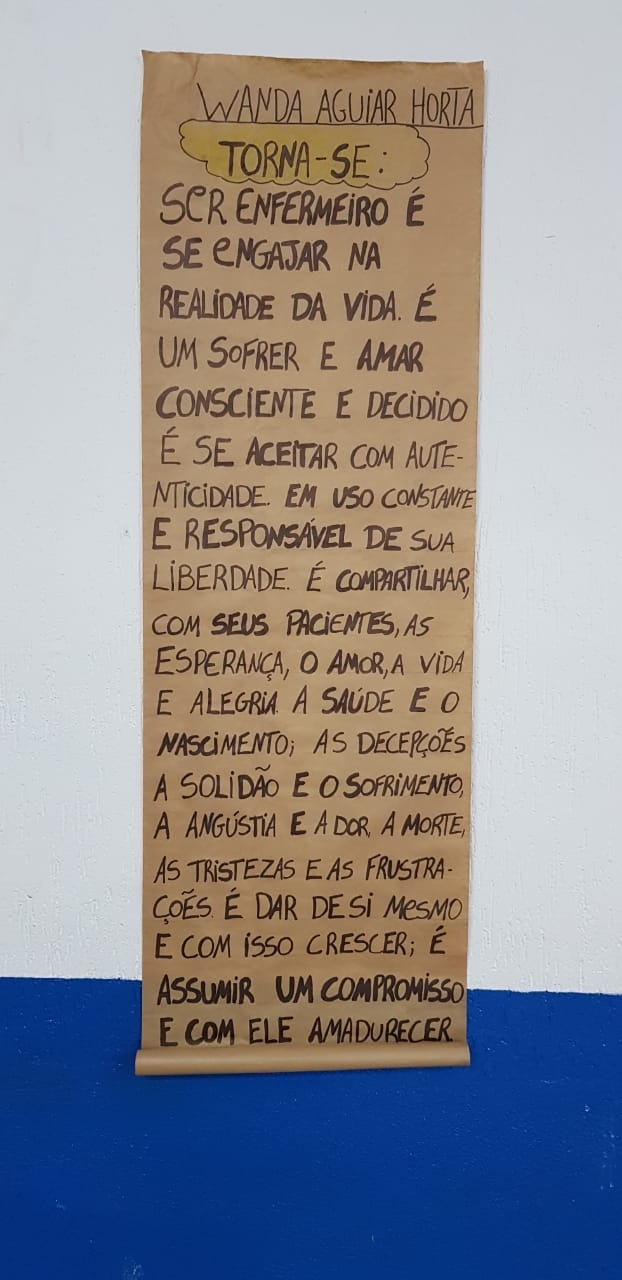 WANDA AGUIAR HORTA
TORNA-SE:
SER ENFERMEIRO É
SE ENGAJAR NA
REALIDADE DA VIDA. É
UM SOFRER E AMAR
CONSCIENTE E DECIDIDO
É SE ACEITAR COM AUTE-
NTICIDADE. EM USO CONSTANTE
E RESPONSÁVEL DE SUA
LIBERDADE. É COMPARTILHAR,
COM SEUS PACIENTES, AS
ESPERANÇA, O AMOR, A VIDA
E ALEGRIA. A SAÚDE E O
NASCIMENTO; AS DECEPÇÕES
A SOLIDÃO E O SOFRIMENTO,
A ANGÚSTIA E A DOR, A MORTE,
AS TRISTEZAS E AS FRUSTRA-
ÇÕES. É DAR DE SI MESMO
E COM ISSO CRESCER; É
ASSUMIR UM COMPROMISSO
E COM ELE AMADURECER.